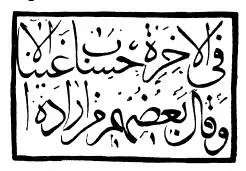 في الاخرة حسابا غير الا
وقال بعضهم من اراد ه